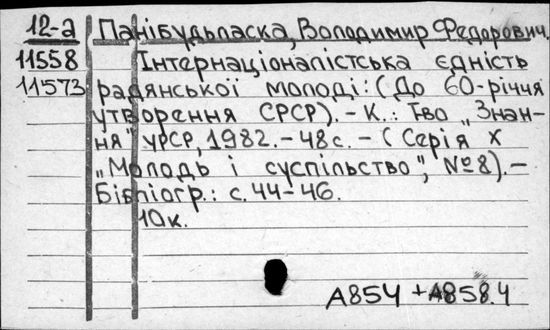 12-а Панібудьласка, Володимир Федорович.
11558 Інтернаціоналістська єдність
11573 радянської молоді: (До 60-річчя
утворення СРСР). - К.: Т-во „Знан-
ня" УРСР, 1982. - 48 с. - (Серія X
„Молодь і суспільство", №8). -
Бібліогр.: с. 44-46.
10к.
А854 + А858.4